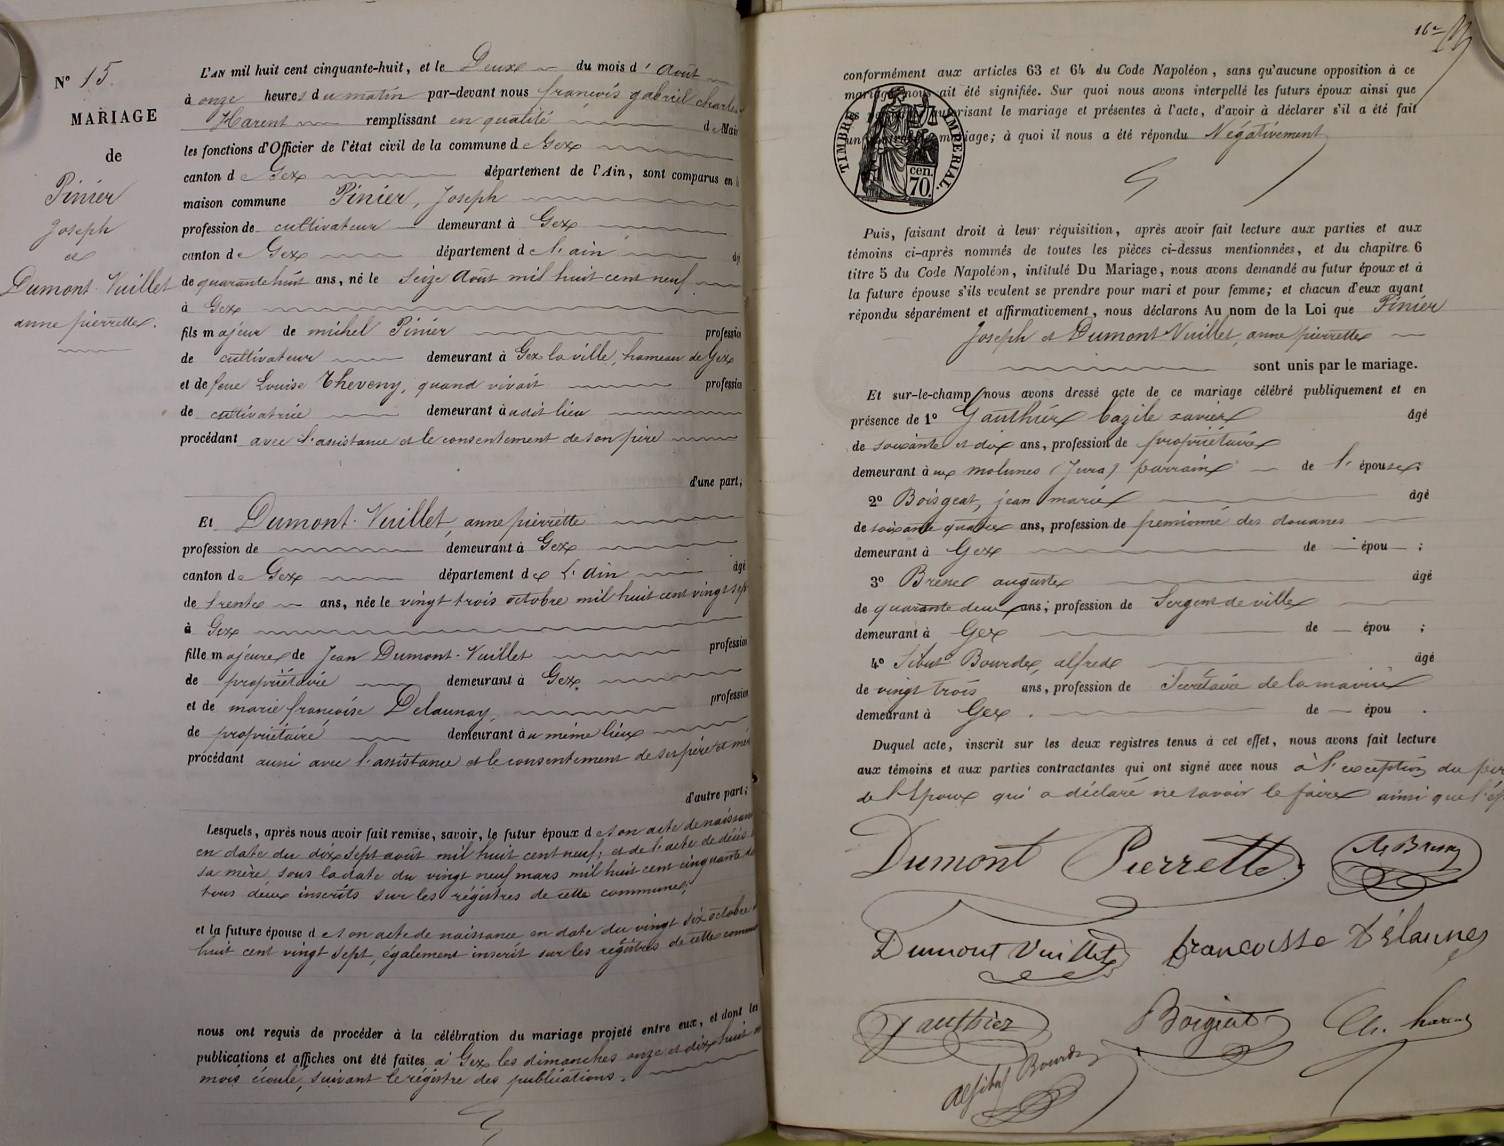 N° 15.
MARIAGE
de
Pinier
Joseph
et
Dumont-Vuillet
anne pierrette.
L'AN mil huit cent cinquante-huit, et le Deux du mois d'Août
à onze heures du matin par-devant nous françois gabriel charles
Harent remplissant en qualité de Mair
les fonctions d'Officier de l'état civil de la commune de Gex
canton de Gex département de l'Ain, sont comparus en
maison commune Pinier, Joseph
profession de cultivateur demeurant à Gex
canton de Gex département de l'ain
de quarante huit ans, né le seize Août mil huit cent neuf
à Gex
fils majeur de michel Pinier profession
de cultivateur demeurant à Gex la ville, hameau de Gex
et de feue Louise Theveny, quand vivait profession
de cultivatrice demeurant audit lieu
procédant avec l'assistance et le consentement de son père
d'une part,
Et Dumont-Vuillet, anne pierrette
profession de demeurant à Gex
canton de Gex département de L'Ain âgé
de trente ans, née le vingt trois octobre mil huit cent vingt sept
à Gex
fille majeure de Jean Dumont-Vuillet profession
de propriétaire demeurant à Gex,
et de marie françoise Delaunay, profession
de propriétaire demeurant au même lieu
procédant aussi avec l'assistance et le consentement de ses père et mère
d'autre part;
Lesquels, après nous avoir fait remise, savoir, le futur époux de son acte de naissance
en date du dix sept août mil huit cent neuf; et de l'acte de décès
sa mère sous la date du vingt neuf mars mil huit cent cinquante
tous deux inscrits sur les régistres de cette commune;
et la future épouse de son acte de naissance en date du vingt six octobre
huit cent vingt sept, également inscrit sur les régistres de cette commune
nous ont requis de procéder à la célébration du mariage projeté entre eux, et dont les
publications et affiches ont été faites à Gex les dimanches onze et dix huit
mois écoulé, suivant le régistre des publications.
conformément aux articles 63 et 64 du Code Napoléon, sans qu'aucune opposition à ce
mariage nous ait été signifiée. Sur quoi nous avons interpellé les futurs époux ainsi que
risant le mariage et présentes à l'acte, d'avoir à déclarer s'il a été fait
un mariage; à quoi il nous a été répondu Négativement
TIMBRE IMPÉRIAL.
cen.
70
Puis, faisant droit à leur réquisition, après avoir fait lecture aux parties et aux
témoins ci-après nommés de toutes les pièces ci-dessus mentionnées, et du chapitre 6
titre 5 du Code Napoléon, intitulé Du Mariage, nous avons demandé au futur époux et à
la future épouse s'ils veulent se prendre pour mari et pour femme; et chacun d'eux ayant
répondu séparément et affirmativement, nous déclarons Au nom de la Loi que Pinier
Joseph et Dumont Vuillet, anne pierrette
sont unis par le mariage.
Et sur-le-champ nous avons dressé acte de ce mariage célébré publiquement et en
présence de 1° Gauthier bazile xavier âgé
de soixante et dix ans, profession de propriétaire
demeurant à aux molunes (Jura) parrain de l'épouse;
2° Boisgeat, jean marie âgé
de soixante quatre ans, profession de pensionné des douanes
demeurant à Gex de épou ;
3° Bresse auguste âgé
de quarante deux ans; profession de Sergent de ville
demeurant à Gex de épou ;
4° Sibut Bourde, alfred âgé
de vingt trois ans, profession de Secrétaire de la mairie
demeurant à Gex. de épou .
Duquel acte, inscrit sur les deux registres tenus à cet effet, nous avons fait lecture
aux témoins et aux parties contractantes qui ont signé avec nous à l'exception du père
de l'Epoux qui a déclaré ne savoir le faire ainsi que l'ép
Dumont Pierrette
Dumont Vuillet francoisse Délaunay
Gauthier Boigeat Ch. harent